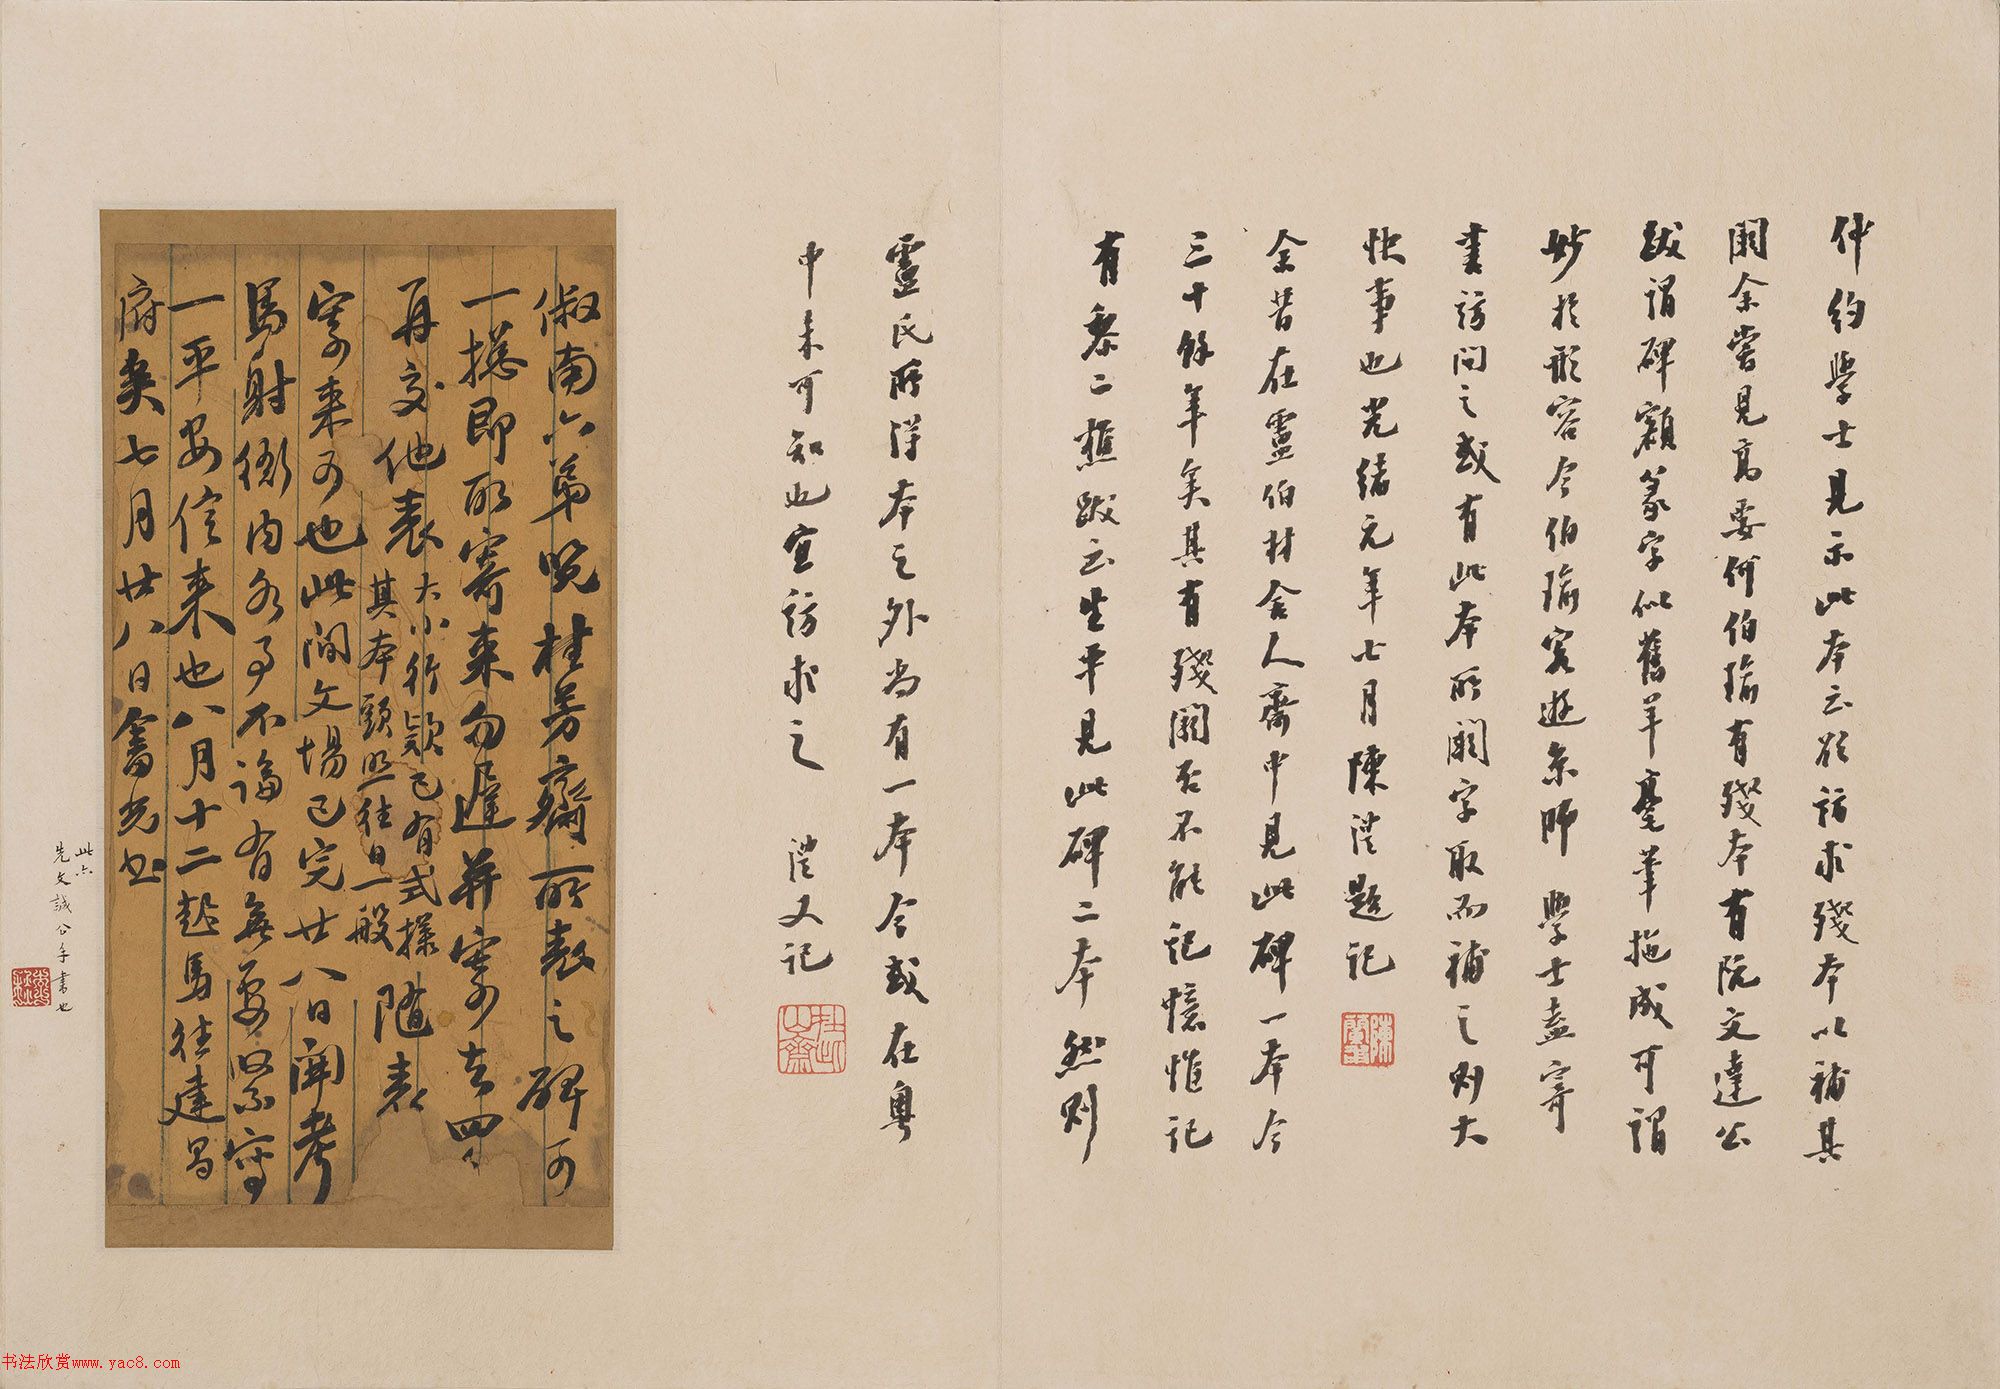 仲約學士見示此本云欲訪求殘本以補其
闕余嘗見高要何伯瑜有殘本有阮文達公
跋謂碑額篆字似舊羊毫筆拖成可謂
妙於形容今伯瑜客遊京師學士盍寄
書訪問之或有此本所闕字取而補之則大
快事也光緒元年七月陳澧題記
陳蘭甫
余昔在靈伯材舍人齋中見此碑一本今
三十餘年矣其有殘闕否不能記憶惟記
有黎二樵跋云生平見此碑二本然則
靈氏所得本之外尚有一本今或在粵
中未可知也宜訪求之 澧又記
俶南六弟見桂芳齋所表之碑可
一摠即所寄來勿遲并寄去四
再交他表大小行款已有式樣隨表
其本頭照往日一般
寄來可也此間文場已完廿八日開考
馬射衙內各事不論有無要緊寫
一平安信來也八月十二起馬往建昌
府矣七月廿八日書
此亦
先文誠公手書也
书法欣赏www.yac8.com